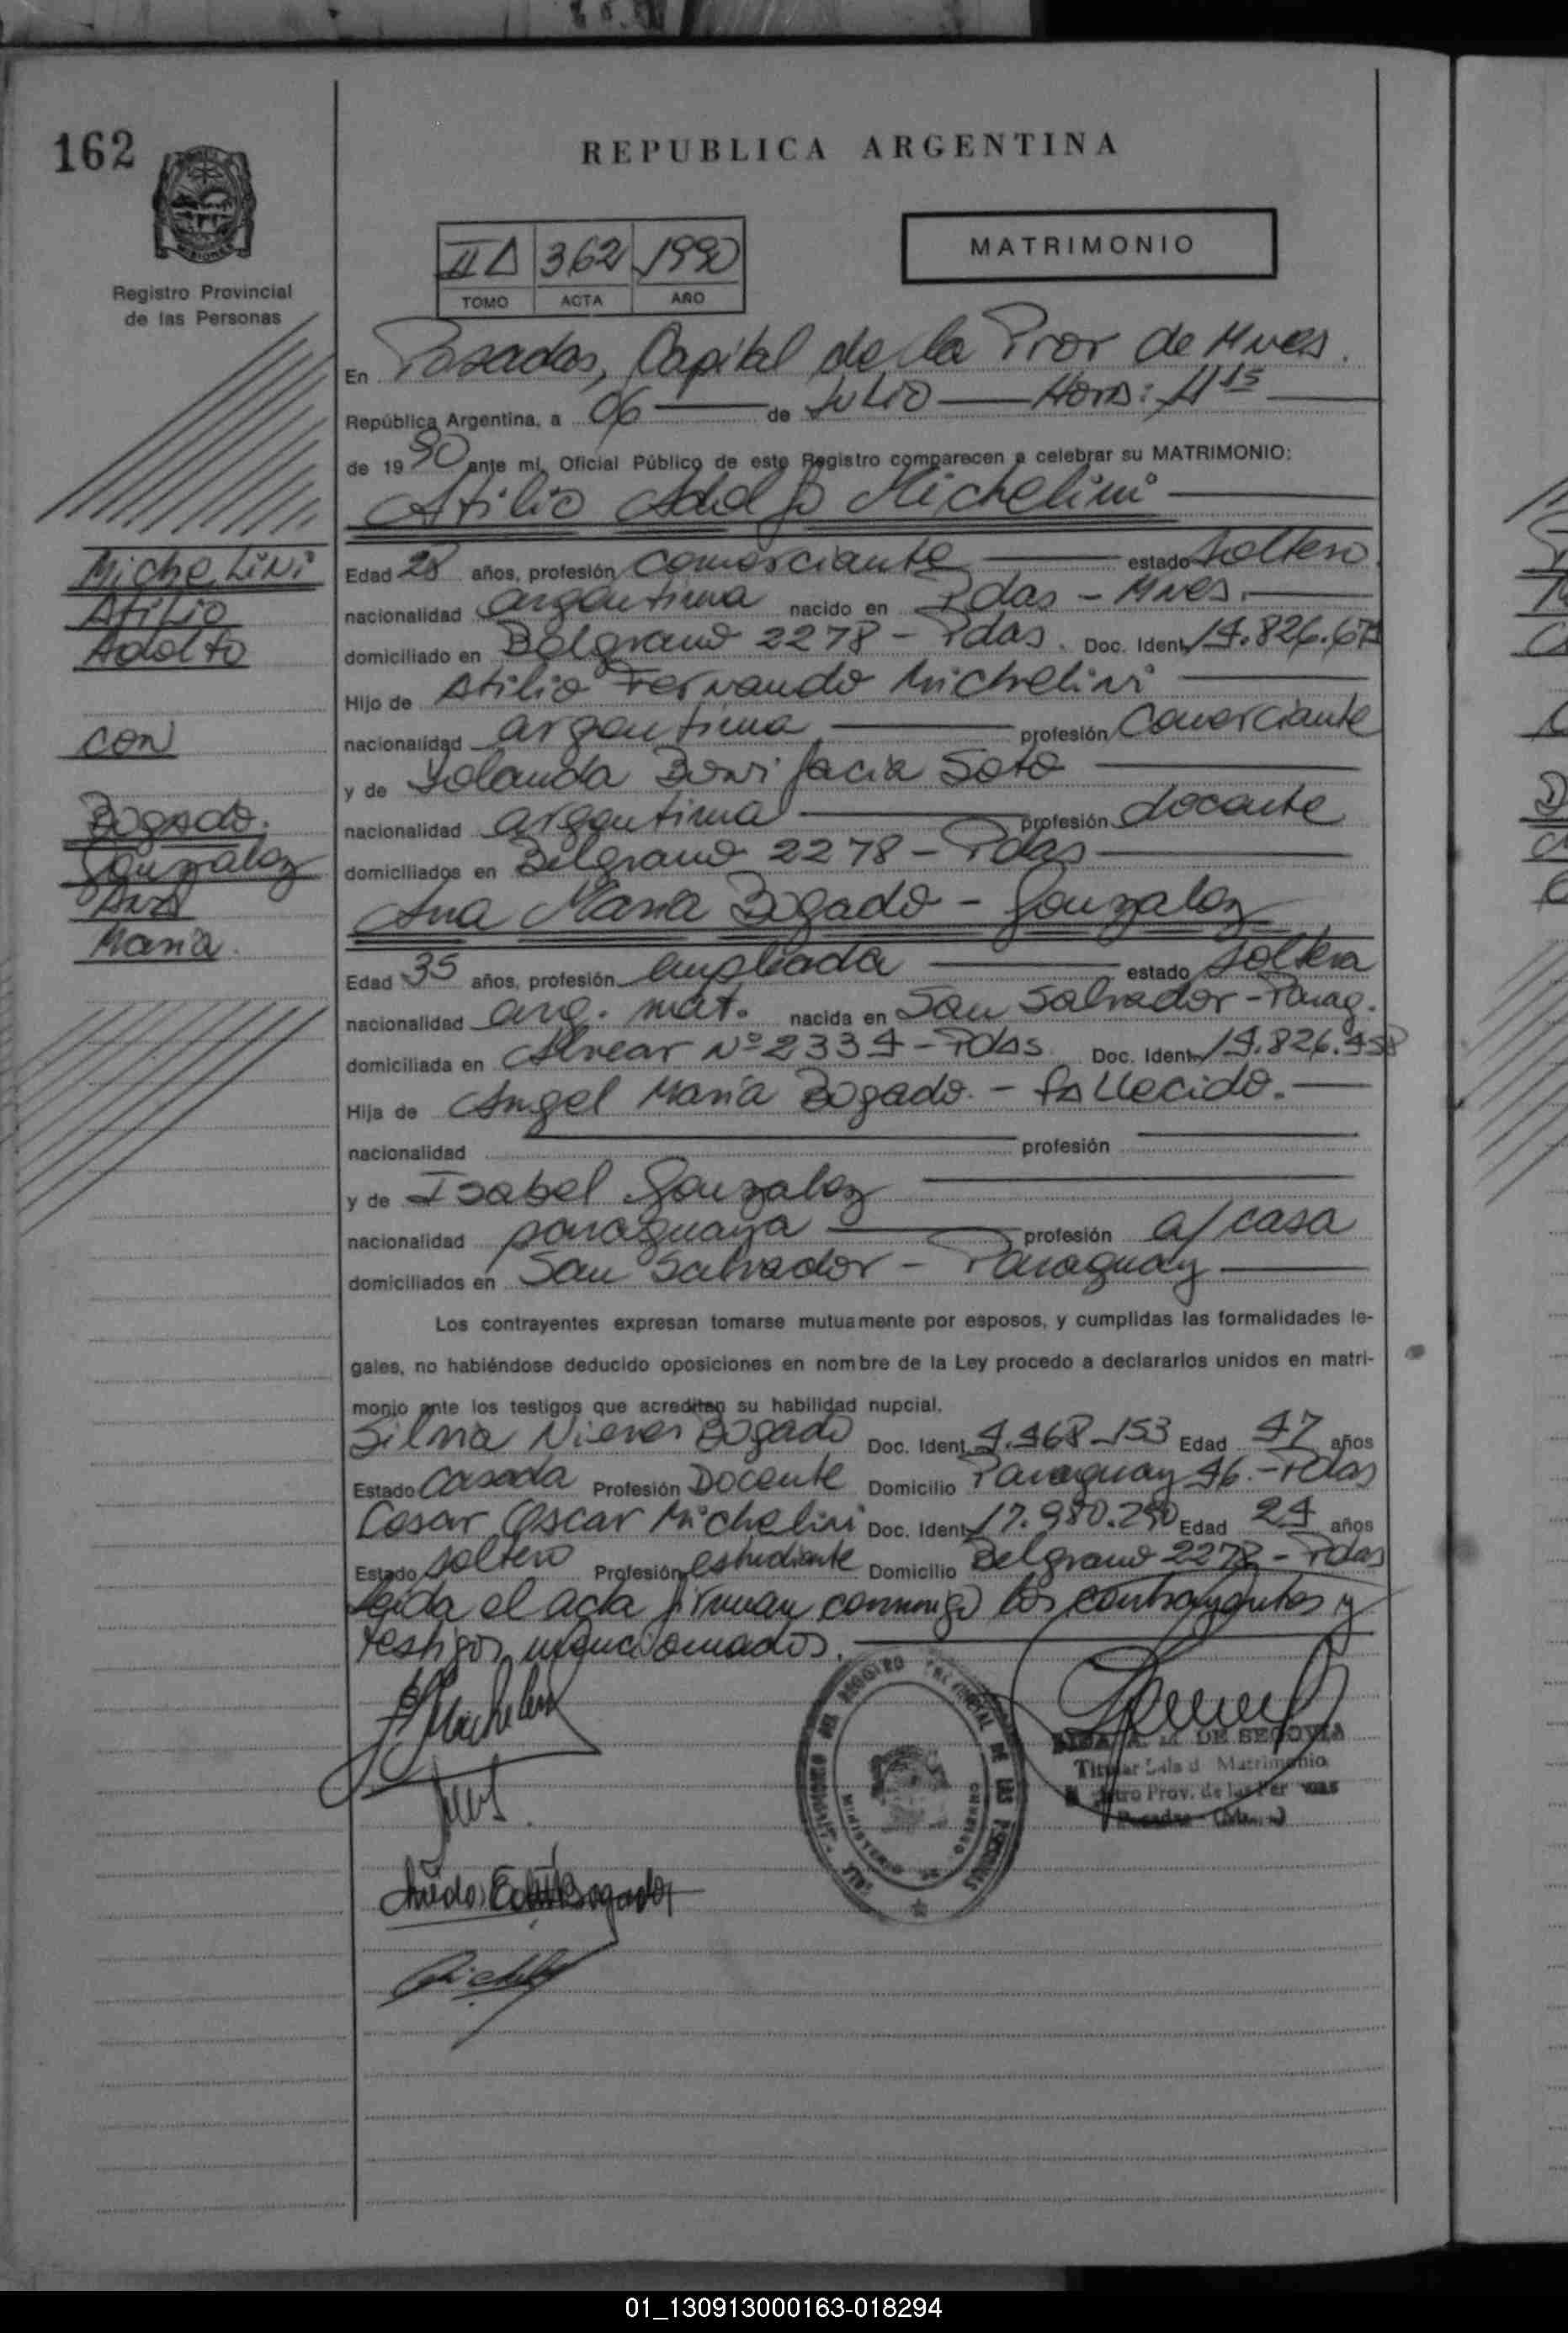 162
REPUBLICA ARGENTINA
MISIONES
Registro Provincial
de las Personas
MATRIMONIO
362 1990
TOMO ACTA AÑO
En Posadas, Capital de la Prov de Mnes.
República Argentina, a 06 de Julio Hora: 11 15
de 1990 ante mí, Oficial Público de este Registro comparecen a celebrar su MATRIMONIO:
Atilio Adolfo Michelini
Michelini
Atilio
Adolfo
con
Bogado
Gonzalez
Ana
Maria
Edad 28 años, profesión comerciante estado soltero
nacionalidad argentina nacido en Pdas - Mnes.
domiciliado en Belgrano 2278 - Pdas. Doc. Ident. 14.826.67
Hijo de Atilio Fernando Michelini
nacionalidad argentina profesión Comerciante
y de Yolanda Bonifacia Soto
nacionalidad argentina profesión docente
domiciliados en Belgrano 2278 - Pdas
Ana Maria Bogado - Gonzalez
Edad 35 años, profesión empleada estado soltera
nacionalidad arg. nat. nacida en San Salvador - Parag.
domiciliada en Alvear Nº 2334 - Pdas Doc. Ident. 14.826.458
Hija de Angel Maria Bogado. - fallecido.
nacionalidad profesión
y de Isabel Gonzalez
nacionalidad paraguaya profesión a/casa
domiciliados en San Salvador - Paraguay
Los contrayentes expresan tomarse mutuamente por esposos, y cumplidas las formalidades le-
gales, no habiéndose deducido oposiciones en nombre de la Ley procedo a declararlos unidos en matri-
monio ante los testigos que acreditan su habilidad nupcial.
Silvia Nieves Bogado Doc. Ident. 4.468.153 Edad 47 años
Estado Casada Profesión Docente Domicilio Paraguay 46. - Pdas
Cesar Oscar Michelini Doc. Ident. 17.980.290 Edad 24 años
Estado soltero Profesión estudiante Domicilio Belgrano 2278 - Pdas
Leida el acta firman conmigo los contrayentes y
testigos mencionados.
REGISTRO PROVINCIAL DE LAS PERSONAS
MINISTERIO GOBIERNO
DE SEGOVIA
Titular Sala d Matrimonio
Prov. de las Per
Posadas
01_130913000163-018294